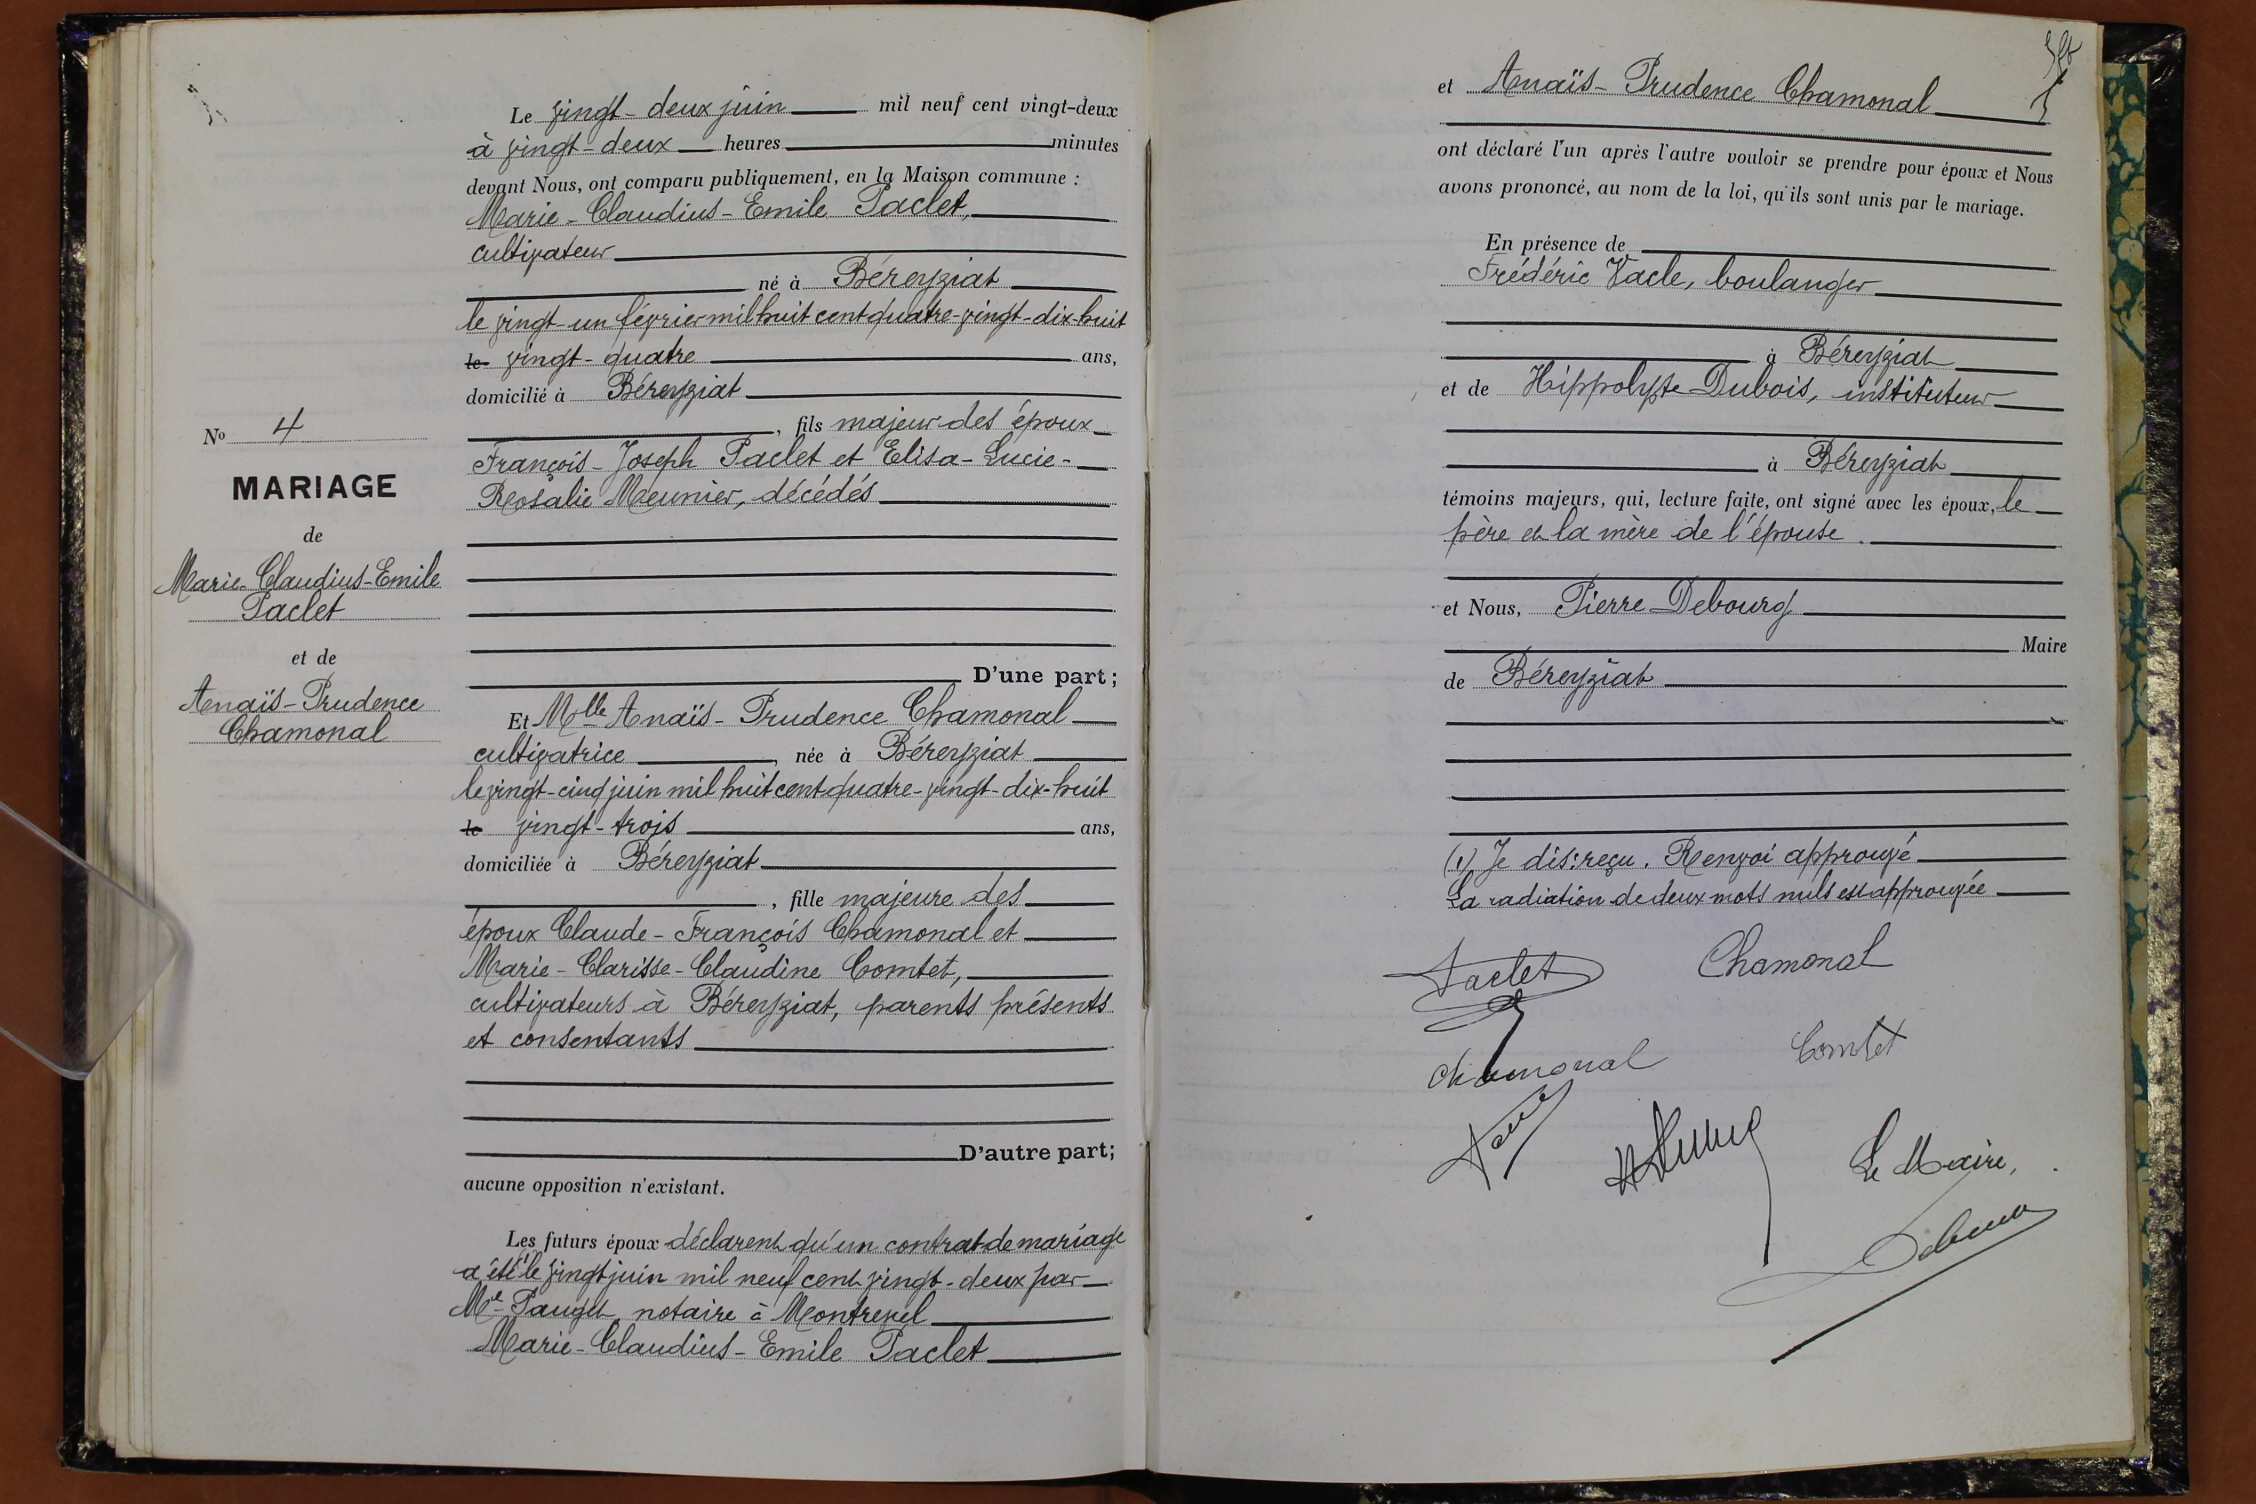 No 4
MARIAGE
de
Marie-Claudius-Emile
Paclet
et de
Anaïs-Prudence
Chamonal
Le vingt-deux juin mil neuf cent vingt-deux
à vingt-deux heures minutes
devant Nous, ont comparu publiquement, en la Maison commune :
Marie-Claudius-Emile Paclet,
cultivateur
né à Béreyziat
le vingt-un février mil huit cent quatre-vingt-dix-huit
le vingt-quatre ans,
domicilié à Béreyziat
, fils majeur des époux
François-Joseph Paclet et Elisa-Lucie-
Rosalie Meunier, décédés
D'une part ;
Et Mlle Anaïs-Prudence Chamonal
cultivatrice, née à Béreyziat
le vingt-cinq juin mil huit cent quatre-vingt-dix-huit
le vingt-trois ans,
domiciliée à Béreyziat
, fille majeure des
époux Claude-François Chamonal et
Marie-Clarisse-Claudine Comtet,
cultivateurs à Béreyziat, parents présents
et consentants
D'autre part;
aucune opposition n'existant.
Les futurs époux déclarent qu'un contrat de mariage
a été le vingt juin mil neuf cent vingt-deux par
Me Pauget notaire à Montrevel
Marie-Claudius-Emile Paclet
et Anaïs-Prudence Chamonal
ont déclaré l'un après l'autre vouloir se prendre pour époux et Nous
avons prononcé, au nom de la loi, qu'ils sont unis par le mariage.
En présence de
Frédéric Vacle, boulanger
à Béreyziat
et de Hippolyte Dubois, instituteur
à Béreyziat
témoins majeurs, qui, lecture faite, ont signé avec les époux, le
père et la mère de l'épouse.
et Nous, Pierre Debourg
Maire
de Béreyziat
(1) Je dis: reçu. Renvoi approuvé
La radiation de deux mots nuls est approuvée
Paclet Chamonal
Chamonal Comtet
Le Maire,